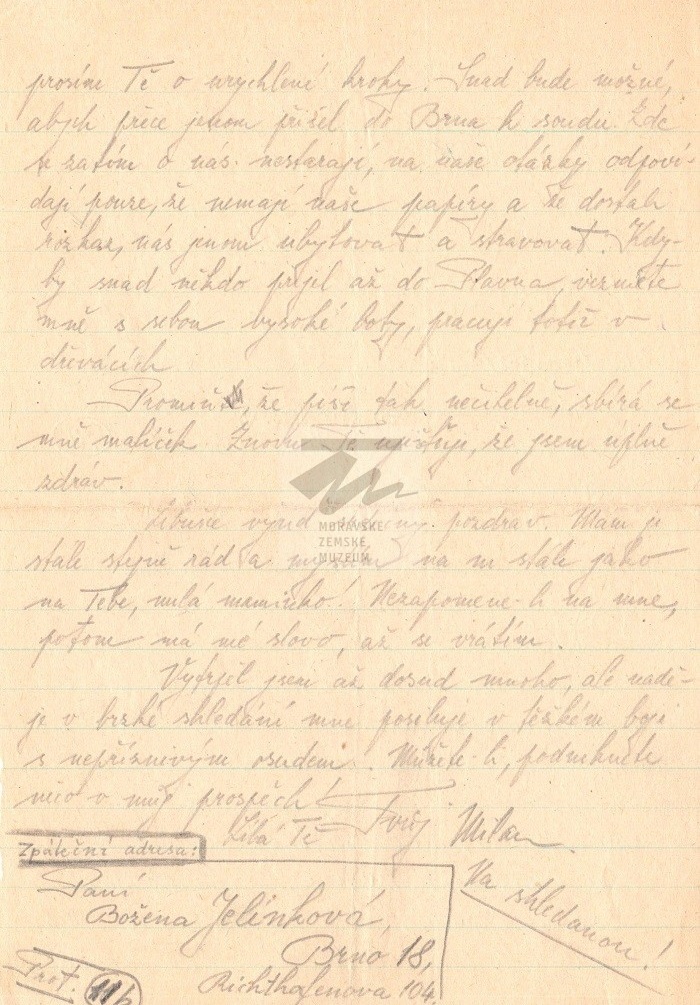 prosím Tě o urychlené kroky. Snad bude možné,
abych přece jenom přišel do Brna k soudu. Zde
se zatím o nás nestarají, na naše otázky odpoví-
dají pouze, že nemají naše papíry a že dostali
rozkaz, nás jenom ubytovat a stravovat. Kdy-
by snad někdo přijel až do Plavna, vezměte
mně s sebou vysoké boty, pracuji totiž v
dřevácích.
Promiňte, že píši tak nečitelně, sbírá se
mně malíček. Znovu Tě ujišťuji, že jsem úplně
zdráv.
Libušce vyřiď pozdrav. Mám ji
stále stejně rád a na ni stále jako
na Tebe, milá maminko! Nezapomene-li na mne,
potom má mé slovo, až se vrátím.
Vytrpěl jsem až dosud mnoho, ale nadě-
je v brzké shledání mne posiluje v těžkém boji
s nepříznivým osudem. Můžete-li, podnikněte
něco v můj prospěch!
Líbá Tě Tvůj Milan
Na shledanou!
Zpáteční adresa:
Paní
Božena Jelínková,
Brno 18,
Richthofenova 104.
Prot. 11b
MORAVSKÉ
ZEMSKÉ
MUZEUM